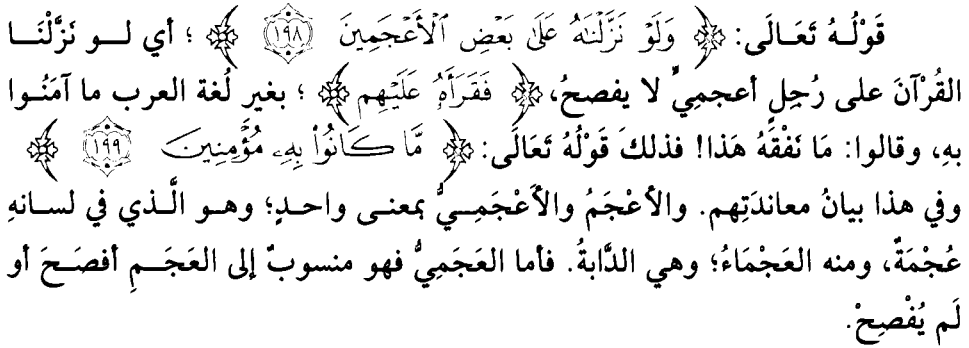 قَوْلُهُ تَعَالَى: ﴿ وَلَوْ نَزَّلْنَاهُ عَلَىٰ بَعْضِ ٱلْأَعْجَمِينَ ﴿١٩٨﴾ ﴾ ؛ أي لو نَزَّلْنَا
القُرْآنَ على رُجلٍ أعجميٍّ لا يفصحُ، ﴿ فَقَرَأَهُۥ عَلَيْهِم ﴾ ؛ بغيرِ لُغة العرب ما آمَنُوا
بهِ، وقالوا: مَا نَفْقَهُ هَذا! فذلكَ قَوْلُهُ تَعَالَى: ﴿ مَّا كَانُوا۟ بِهِۦ مُؤْمِنِينَ ﴿١٩٩﴾ ﴾
وفي هذا بيانُ معاندَتِهم. والأعْجَمُ والأَعْجَمِيُّ بمعنى واحدٍ؛ وهو الَّذي في لسانهِ
عُجْمَةٌ، ومنه العَجْمَاءُ؛ وهي الدَّابةُ. فأما العَجَمِيُّ فهو منسوبٌ إلى العَجَمِ أفصَحَ أو
لَم يُفْصِحْ.